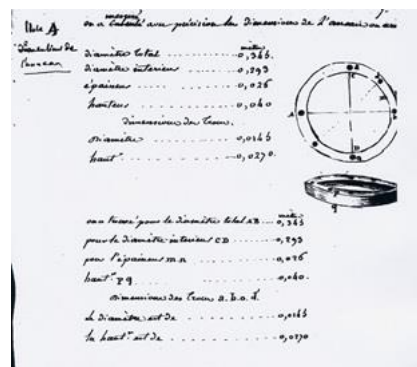 Note A
Dimensions de
l'anneau
mesuré
on a calculé avec précision les dimensions de l'anneau on a
mètre
diamètre total 0,345
diamètre intérieur 0,293
épaisseur 0,026
hauteur 0,040
dimensions des trous.
diamètre 0,0145
haut.r 0,0270
mètre
on a trouvé pour le diamètre total AB 0,345
pour le diamètre intérieur CD 0,293
pour l'épaisseur mn 0,026
haut.r pq 0,040.
dimensions des trous a. b. c. d.
le diamètre est de 0,0145
la haut.r est de 0,0270